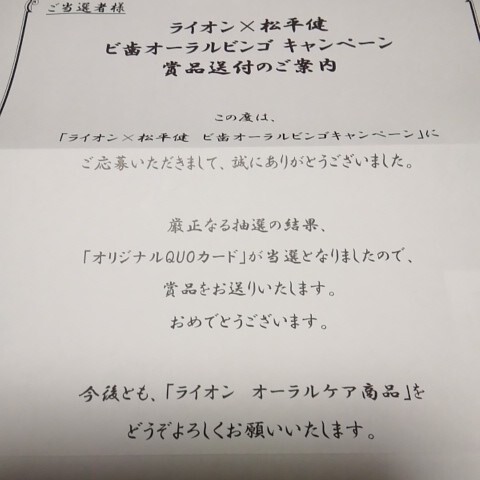 ご当選者様
ライオン×松平健
ビ歯オーラルビンゴ キャンペーン
賞品送付のご案内
この度は、
「ライオン×松平健 ビ歯オーラルビンゴキャンペーン」に
ご応募いただきまして、誠にありがとうございました。
厳正なる抽選の結果、
「オリジナルQUOカード」が当選となりましたので、
賞品をお送りいたします。
おめでとうございます。
今後とも、「ライオン　オーラルケア商品」を
どうぞよろしくお願いいたします。